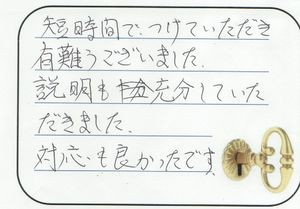 短時間で、つけていただき
有難うございました。
説明も充分していた
だきました。
対応も良かったです